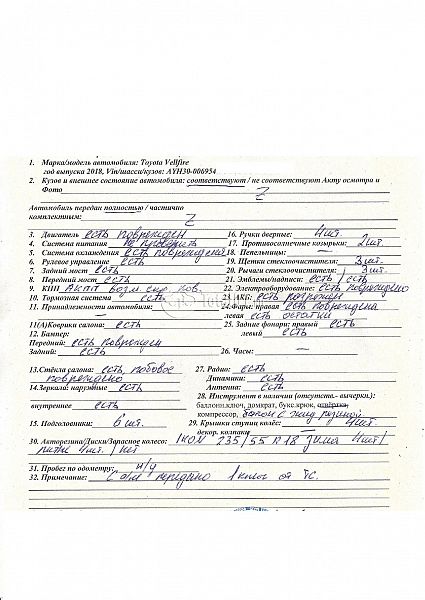 1. Марка/модель автомобиля: Toyota Vellfire
год выпуска 2018, Vin/шасси/кузов: AYH30-006954
2. Кузов и внешнее состояние автомобиля: соответствуют / не соответствуют Акту осмотра и
Фото Z
Автомобиль передан полностью / частично
комплектным: Z
3. Двигатель есть поврежден
4. Система питания не проверить
5. Система охлаждения есть повреждена
6. Рулевое управление есть
7. Задний мост есть
8. Передний мост есть
9. КПП АКПП возм. скр. пов.
10. Тормозная система есть
11. Принадлежности автомобиля:
—
11(А)Коврики салона: есть
12. Бампер:
Передний: есть поврежден
Задний: есть
13.Стёкла салона: есть, лобовое
повреждено
14.Зеркала: наружные есть
внутреннее есть
15. Подголовники: 6 шт.
16. Ручки дверные: 4шт.
17. Противосолнечные козырьки: 2шт.
18. Пепельницы: —
19. Щетки стеклоочистителя: 3шт.
20. Рычаги стеклоочистителя: 3шт.
21. Эмблемы/надписи: есть / есть
22. Электрооборудование: есть повреждено
23. АКБ: есть поврежден
24.Фары: правая есть повреждена
левая есть
25. Задние фонари: правый есть
левый есть
26. Часы: —
27. Радио: есть
Динамики: есть
Антенна: есть
28. Инструмент в наличии (отсутств.- вычеркн.):
баллонн.ключ, домкрат, букс.крюк, отвёртка,
компрессор,
29. Крышки ступиц колёс: 4шт.
декор. колпаки —
30. Авторезина/Диски/Запасное колесо: 1КОМ 235/55 R18 зима 4шт/
4шт. / нет
31. Пробег по одометру: н/д
32. Примечание: С а/м передано 1 ключ от ТС.